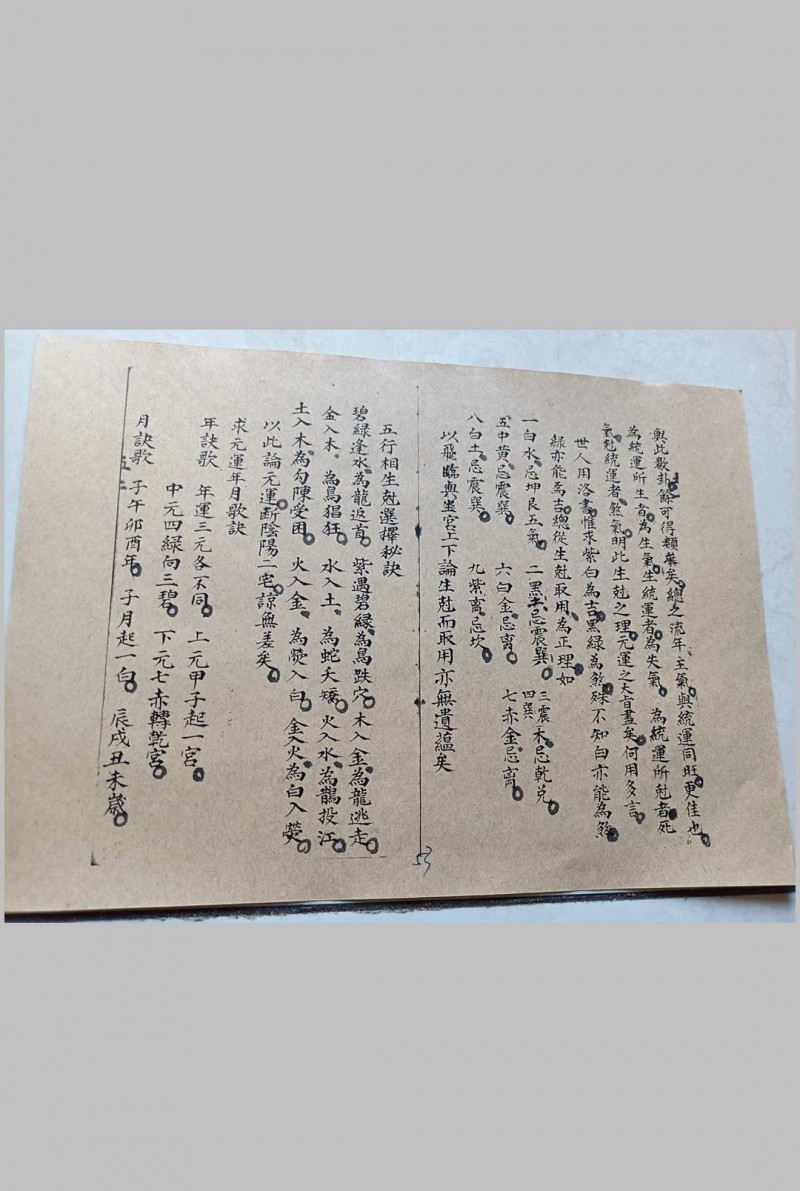 與此數卦餘可得類矣總之流年主氣與統運同旺更佳也
為統運所生者為生氣生統運者為失氣 為統運所尅者死
氣尅統運者煞氣明此生尅之理元運之大旨盡矣何用多言
世人用洛書惟求紫白為吉黑綠為煞殊不知白亦能為煞
綠亦能為吉總從生尅取用為正理如
一白水忌坤艮五氣 二黑土忌震巽 三震四巽木忌乾兌
五中黃忌震巽 六白金忌离 七赤金忌离
八白土忌震巽 九紫离忌坎
以飛臨與坐宮上下論生尅而取用亦無遺蘊矣
53
五行相生尅選擇秘訣
碧綠逢水為龍返首 紫遇碧綠為鳥跌穴 木入金為龍逃走
金入木 為鳥猖狂 水入土 為蛇夭矯 火入水為鵲投江
土入木為勾陳受困 火入金 為熒入白 金入火為白入熒
以此論元運斷陰陽二宅諒無差矣
求元運年月歌訣
年訣歌 年運三元各不同 上元甲子起一宮
中元四綠向三碧 下元七赤轉乾宮
月訣歌 子午卯酉年 子月起一白 辰戌丑未歲